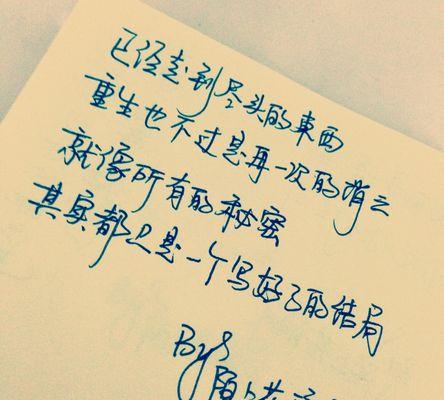 已经走到尽头的東西
重生也不过是再一次的消亡
就像所有的秘密
其实都只是一个写好了的结局
By
陌上